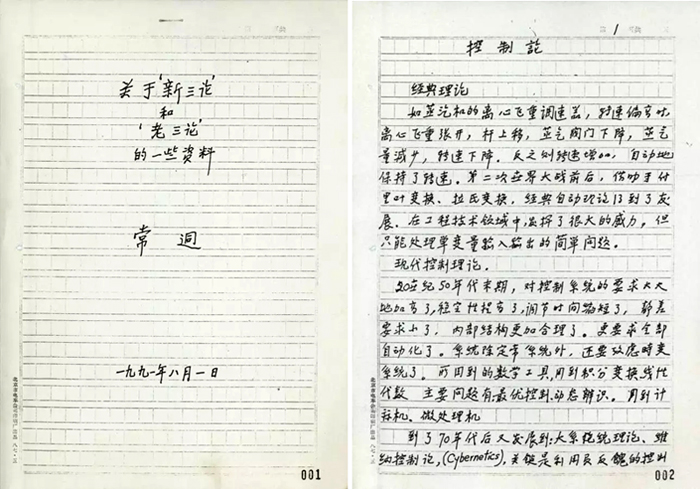 关于'新三论'
和
'老三论'
的一些资料
常迥
一九九一年八月一日
001
第 1 页
控制论
经典理论
如蒸汽机的离心飞重调速器,转速偏高时
离心飞重张开,杆上移,蒸气阀门下降,蒸气
量减少,转速下降。反之则转速增加,自动地
保持了转速。第二次世界大战前后,借助于付
里叶变换、拉氏变换,经典自动理论得到了发
展。在工程技术领域中发挥了很大的威力,但
只能处理单变量输入输出的简单问题。
现代控制理论。
20世纪50年代末期,对控制系统的要求大大
地加高了,稳定性提高了,调节时间缩短了,静差
要求小了,内部结构更加合理了。更要求全部
自动化了。系统除定常系统外,还要考虑时变
系统了。所用到的数学工具,用到积分变换、线性
代数 主要问题有最优控制、动态辨识。用到计
标机、微处理机
到了70年代后又发展到:大系统理论、维
纳控制论,(Cybernetics),关键是利用反馈的控制
002